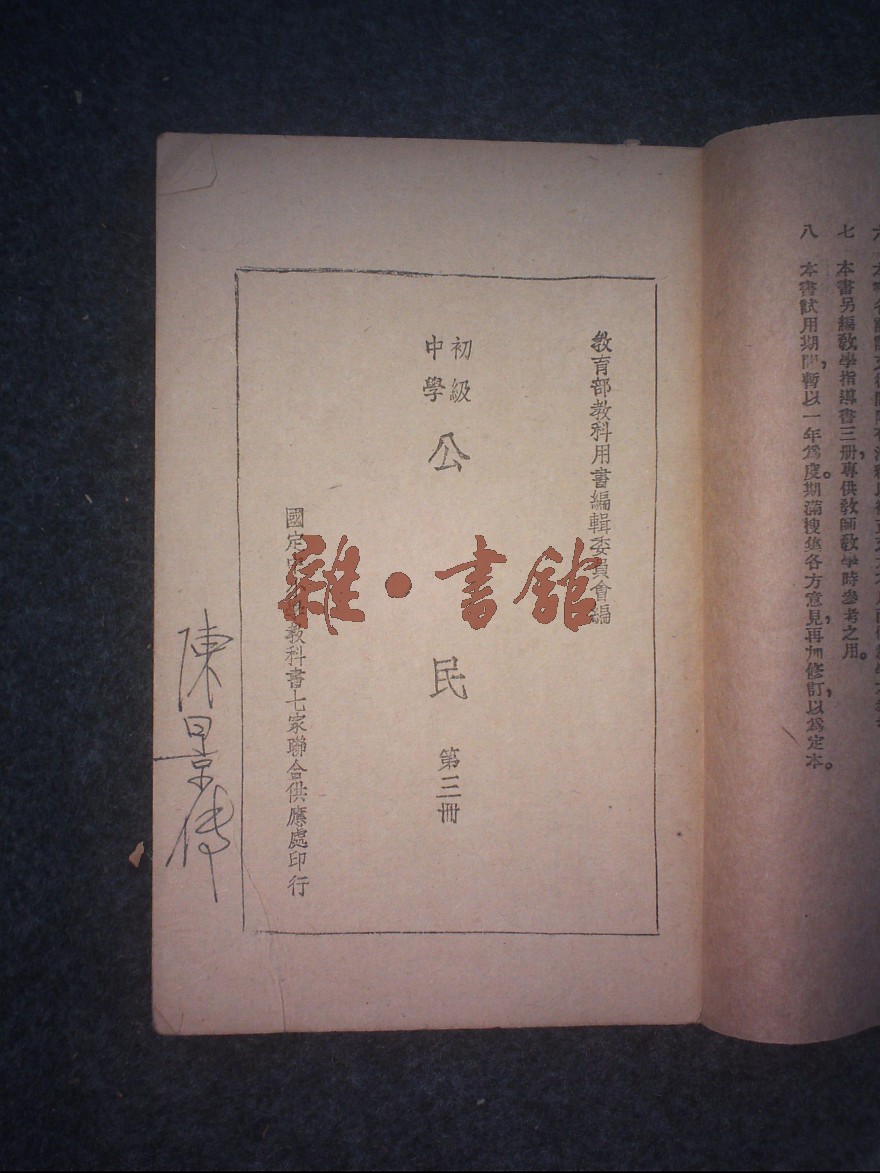 八　本書試用期間，暫以一年爲度。期滿搜集各方意見，再加修訂，以爲定本。
七　本書另編教學指導書三冊，專供教師教學時參考之用。
教育部教科用書編輯委員會編
初級
中學
公民　第三冊
國定教科書七家聯合供應處印行
雜·書舘
陳景傳